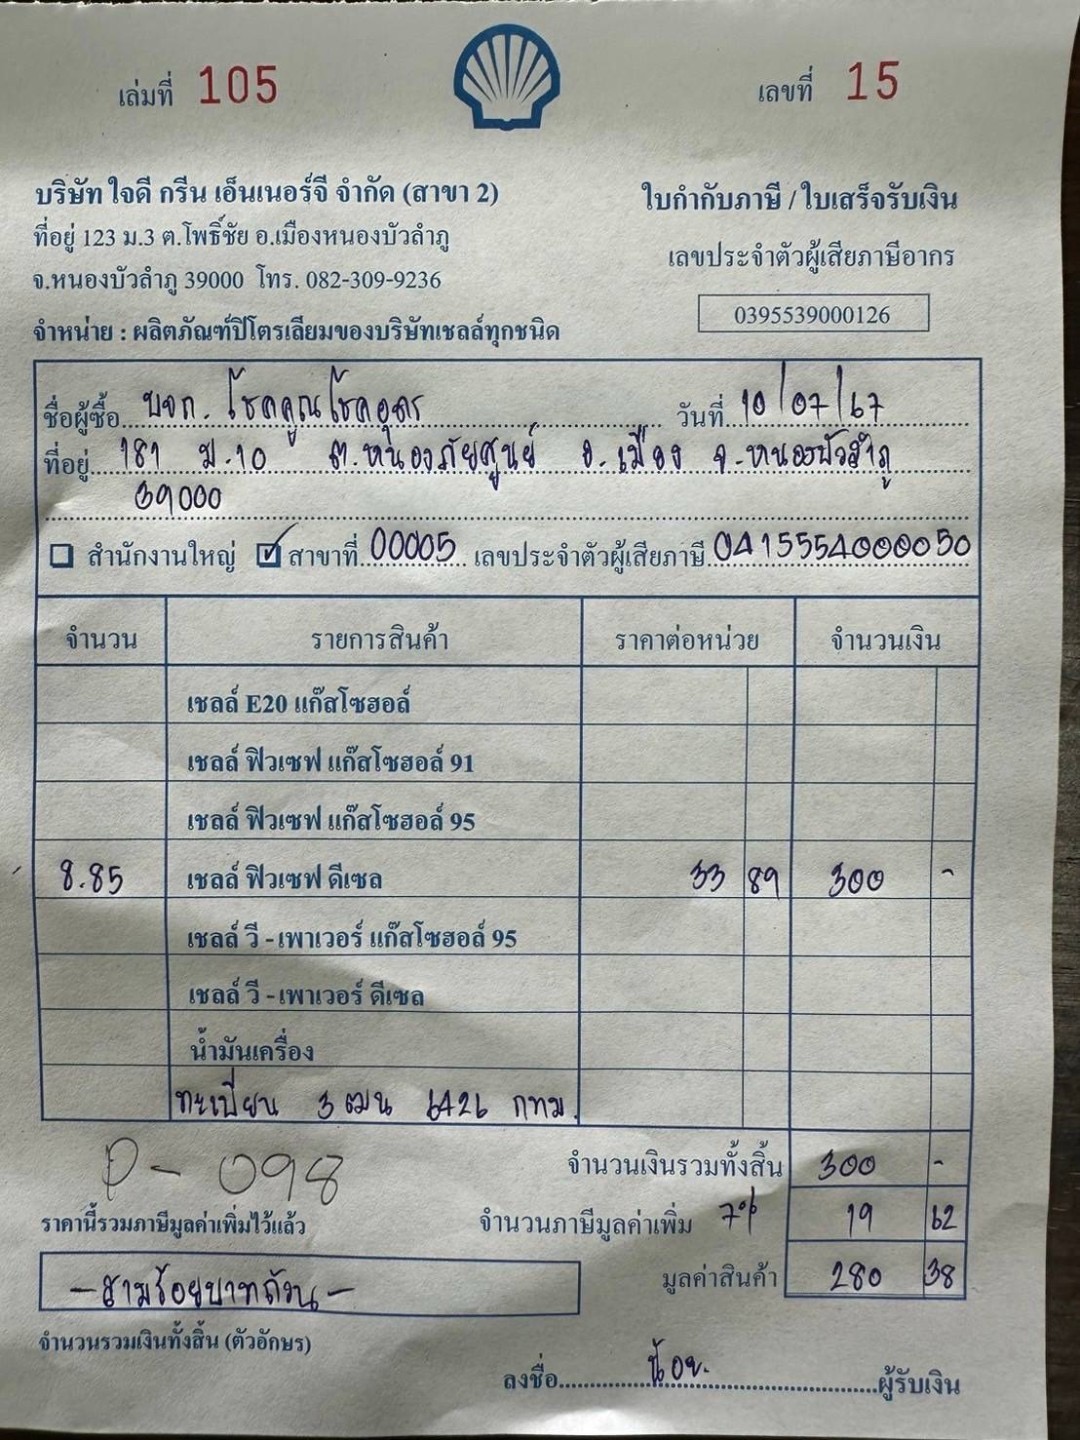 เล่มที่ 105
เลขที่ 15
บริษัท ใจดี กรีน เอ็นเนอร์จี จำกัด (สาขา 2)
ที่อยู่ 123 ม.3 ต.โพธิ์ชัย อ.เมืองหนองบัวลำภู
จ.หนองบัวลำภู 39000 โทร. 082-309-9236
จำหน่าย : ผลิตภัณฑ์ปิโตรเลียมของบริษัทเชลล์ทุกชนิด
ใบกำกับภาษี / ใบเสร็จรับเงิน
เลขประจำตัวผู้เสียภาษีอากร
0395539000126
ชื่อผู้ซื้อ บจก. โชคคูณโชคอุดร วันที่ 10/07/67
ที่อยู่ 181 ม.10 ต.หนองภัยศูนย์ อ.เมือง จ.หนองบัวลำภู
39000
สำนักงานใหญ่ สาขาที่ 00005 เลขประจำตัวผู้เสียภาษี 0415554000050
จำนวน รายการสินค้า ราคาต่อหน่วย จำนวนเงิน
เชลล์ E20 แก๊สโซฮอล์
เชลล์ ฟิวเซฟ แก๊สโซฮอล์ 91
เชลล์ ฟิวเซฟ แก๊สโซฮอล์ 95
8.85 เชลล์ ฟิวเซฟ ดีเซล 33 89 300 -
เชลล์ วี - เพาเวอร์ แก๊สโซฮอล์ 95
เชลล์ วี - เพาเวอร์ ดีเซล
น้ำมันเครื่อง
ทะเบียน 3ฒน 6426 กทม.
จำนวนเงินรวมทั้งสิ้น 300 -
P-098
ราคานี้รวมภาษีมูลค่าเพิ่มไว้แล้ว จำนวนภาษีมูลค่าเพิ่ม 7% 19 62
มูลค่าสินค้า 280 38
-สามร้อยบาทถ้วน-
จำนวนรวมเงินทั้งสิ้น (ตัวอักษร)
ลงชื่อ น้อย ผู้รับเงิน